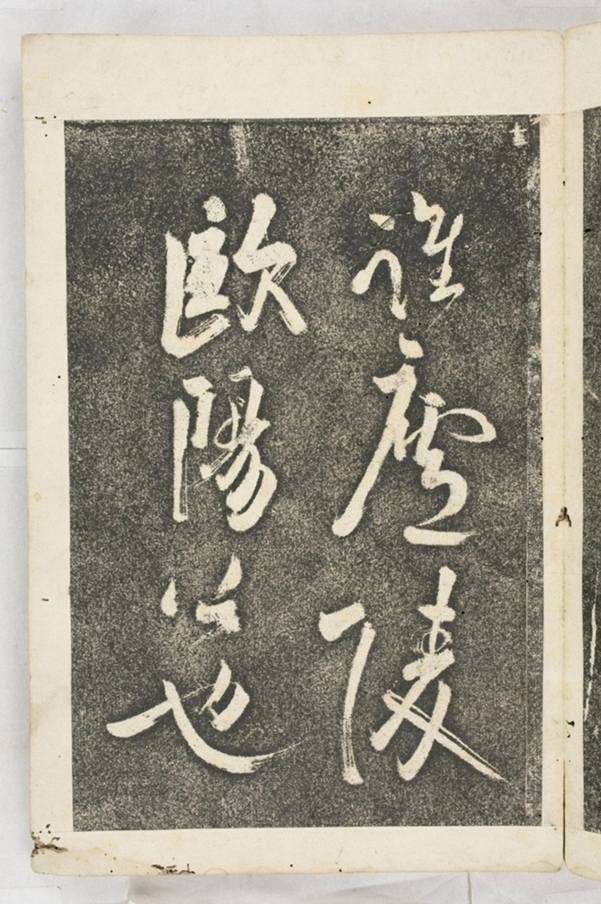 誰廬陵
歐陽公也